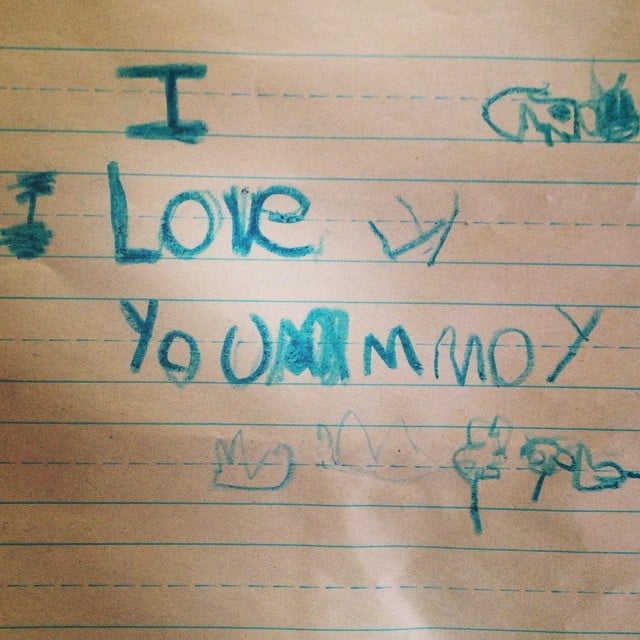 I
I Love
YOU MMOY